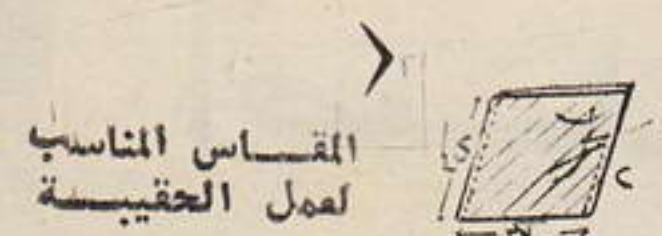 المقـــاس المناسب
لعمل الحقيبـــة